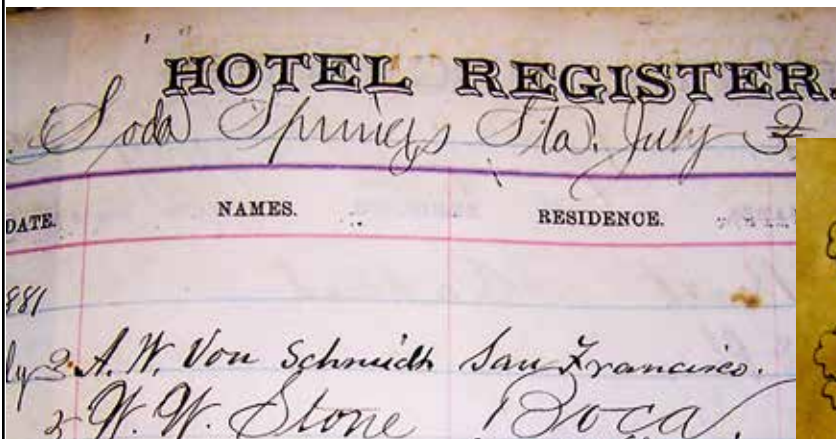 HOTEL REGISTER.
Soda Springs Sta. July 3
DATE. NAMES. RESIDENCE.
881
ly 3 A. W. Von Schmidt San Francisco.
W. W. Stone Boca.